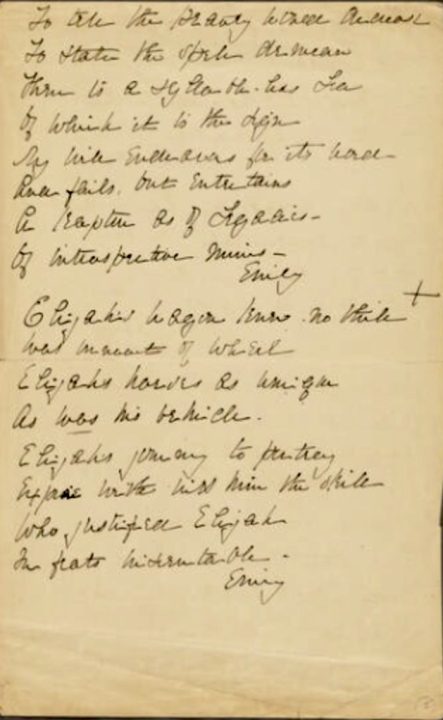 To tell the Beauty would decrease
To state the spell demean
There is a syllable-less Sea
Of which it is the sign
My will endeavors for its word
And fails, but entertains
A Rapture as of Legacies -
Of introspective mines -
Emily
Elijah's wagon knew no thill +
Was innocent of wheel
Elijahs horses as unique
As was his vehicle.
Elijahs journey to portray
Expire with him the skill
Who justified Elijah
In feats inscrutable -
Emily